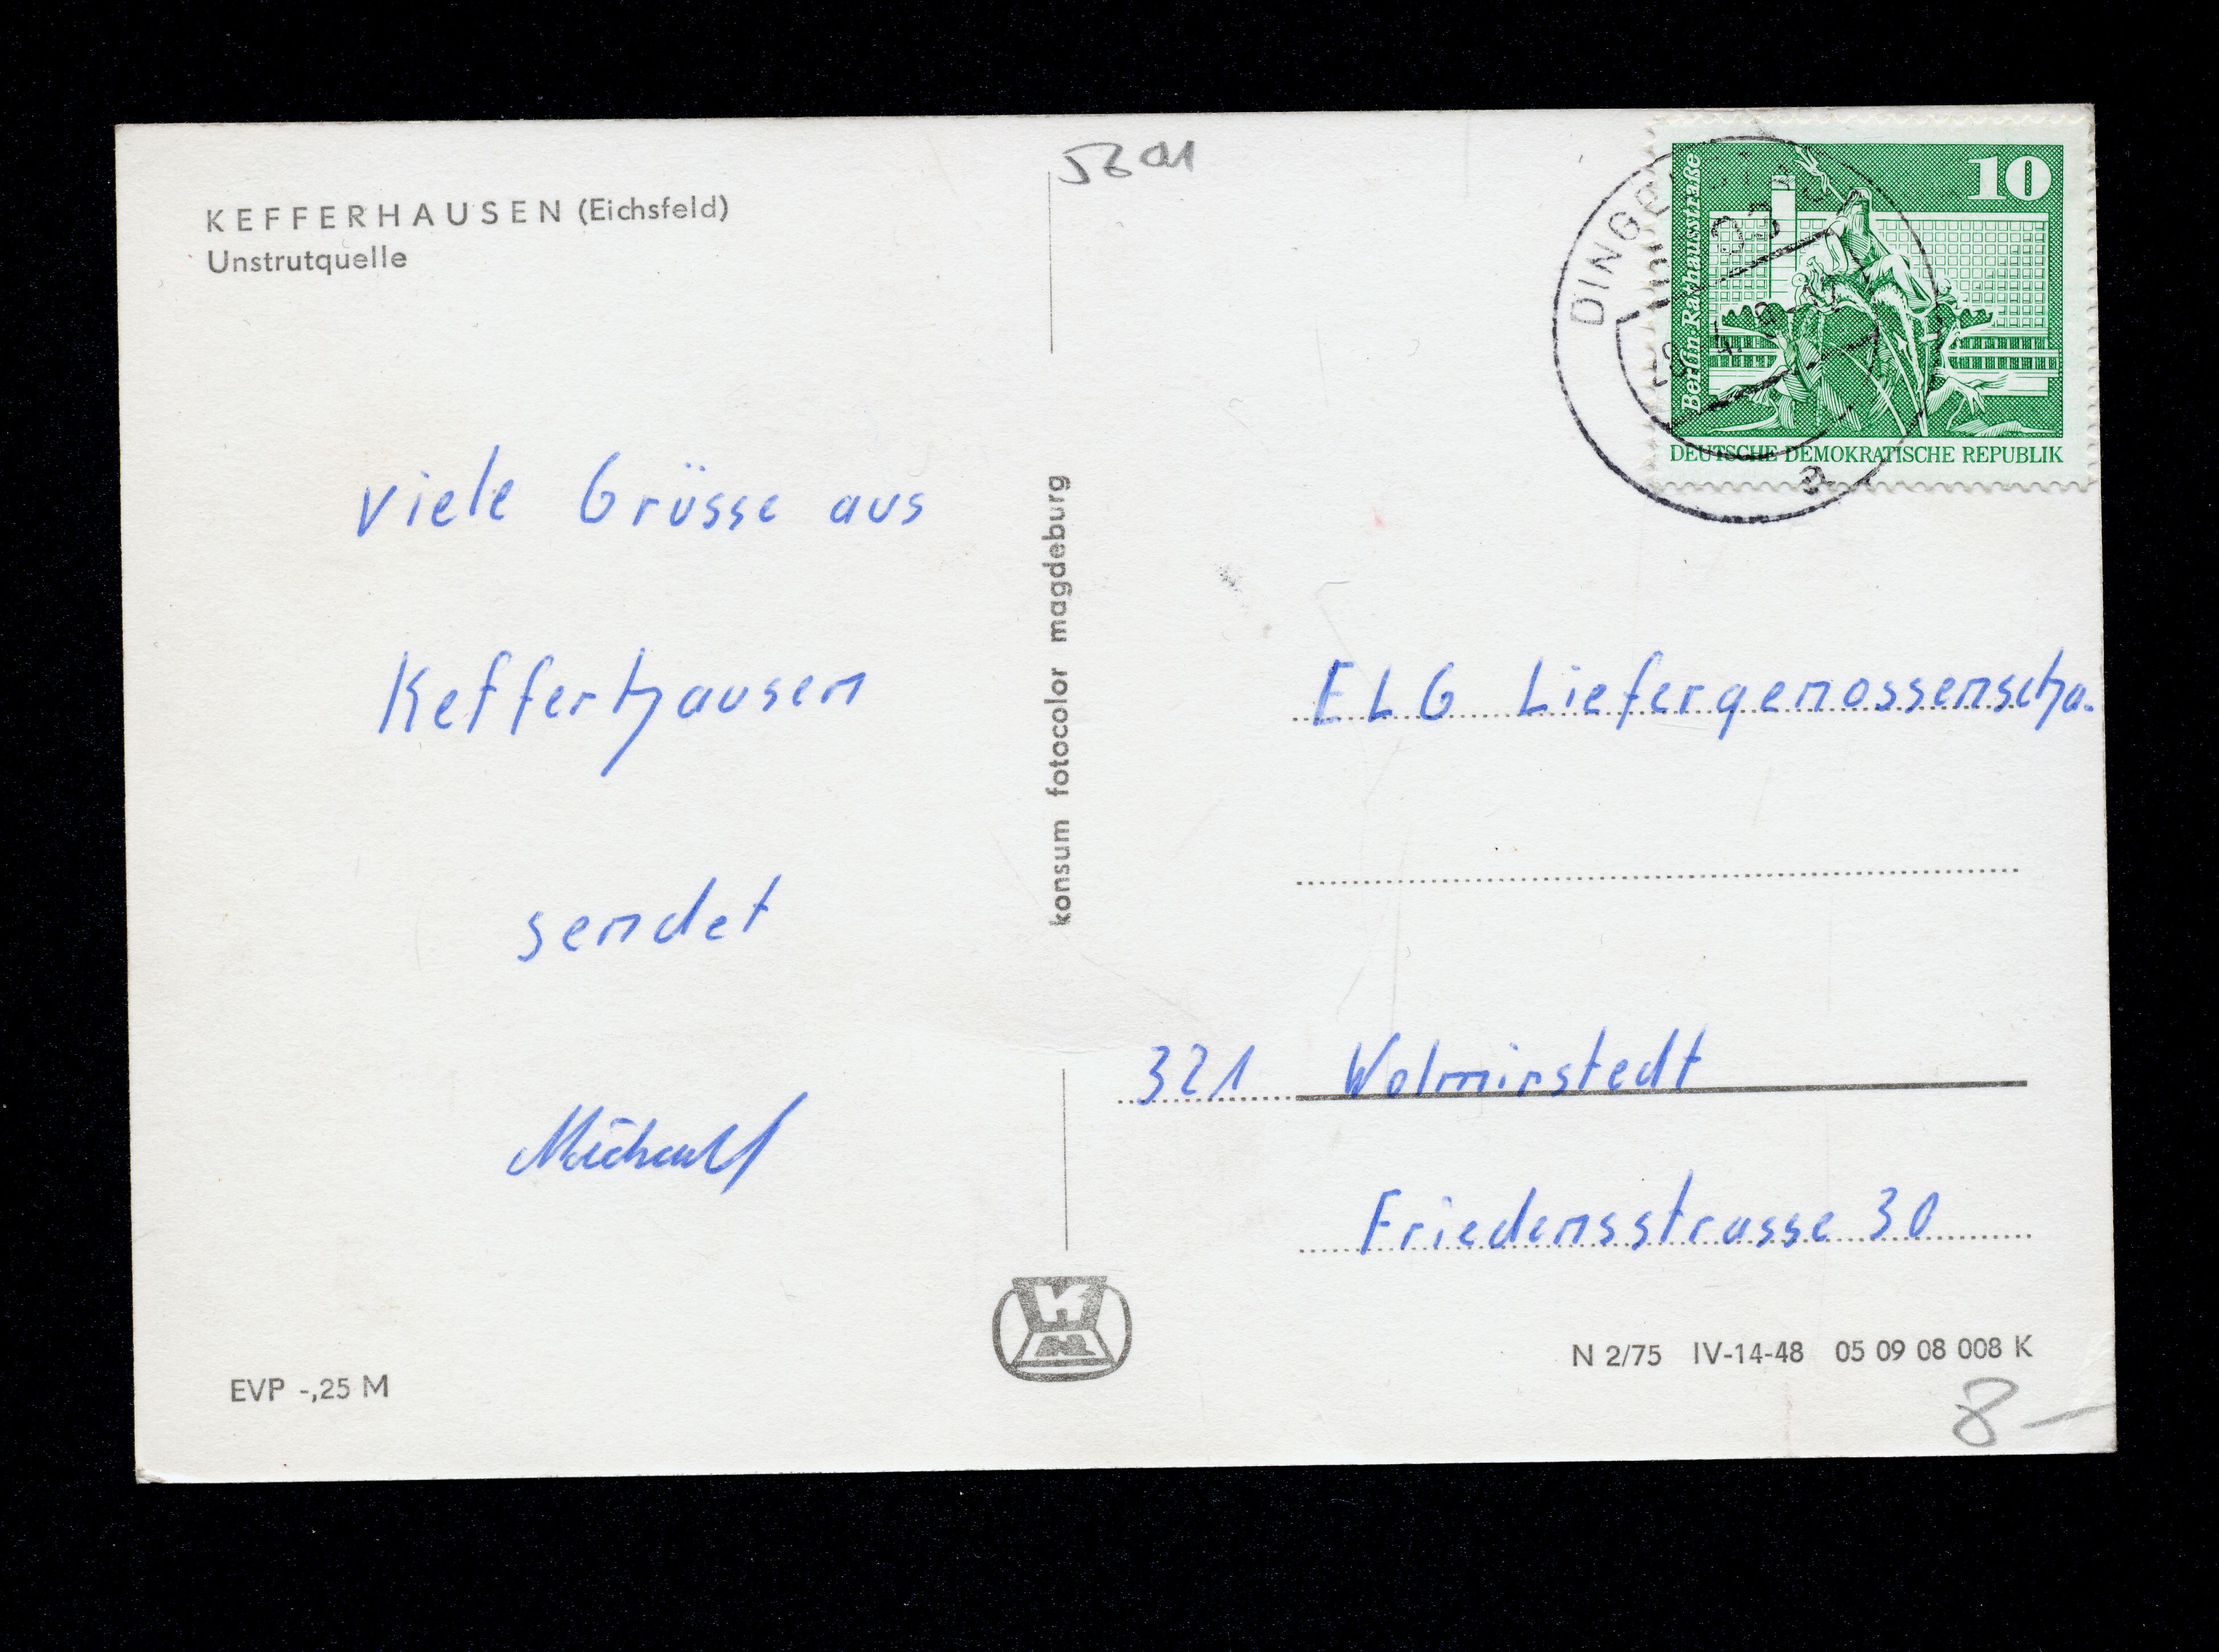 KEFFERHAUSEN (Eichsfeld)
Unstrutquelle
viele Grüsse aus
Kefferhausen
sendet
Michael
EVP -,25 M
konsum fotocolor magdeburg
10
Berlin·Rathausstraße
DEUTSCHE DEMOKRATISCHE REPUBLIK
ELG Liefergenossenscha.
321 Wolmirstedt
Friedensstrasse 30
N 2/75 IV-14-48 05 09 08 008 K
8-